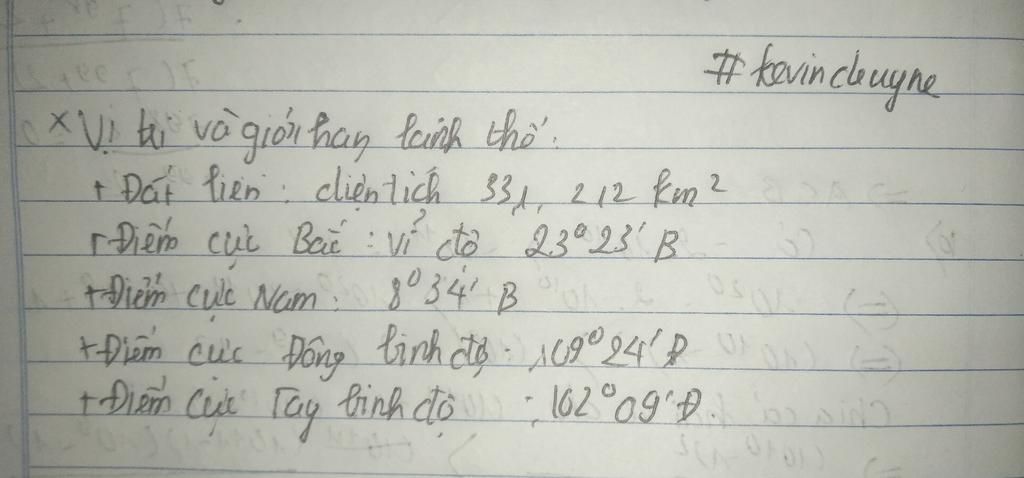 #kevincheuyne
× Vị trí và giới hạn lãnh thổ:
+ Đất liền: diện tích 331, 212 km²
+ Điểm cực Bắc: vĩ độ 23°23' B
+ Điểm cực Nam: 8°34' B
+ Điểm cực Đông kinh độ: 109°24' Đ
+ Điểm cực Tây kinh độ: 102°09' Đ